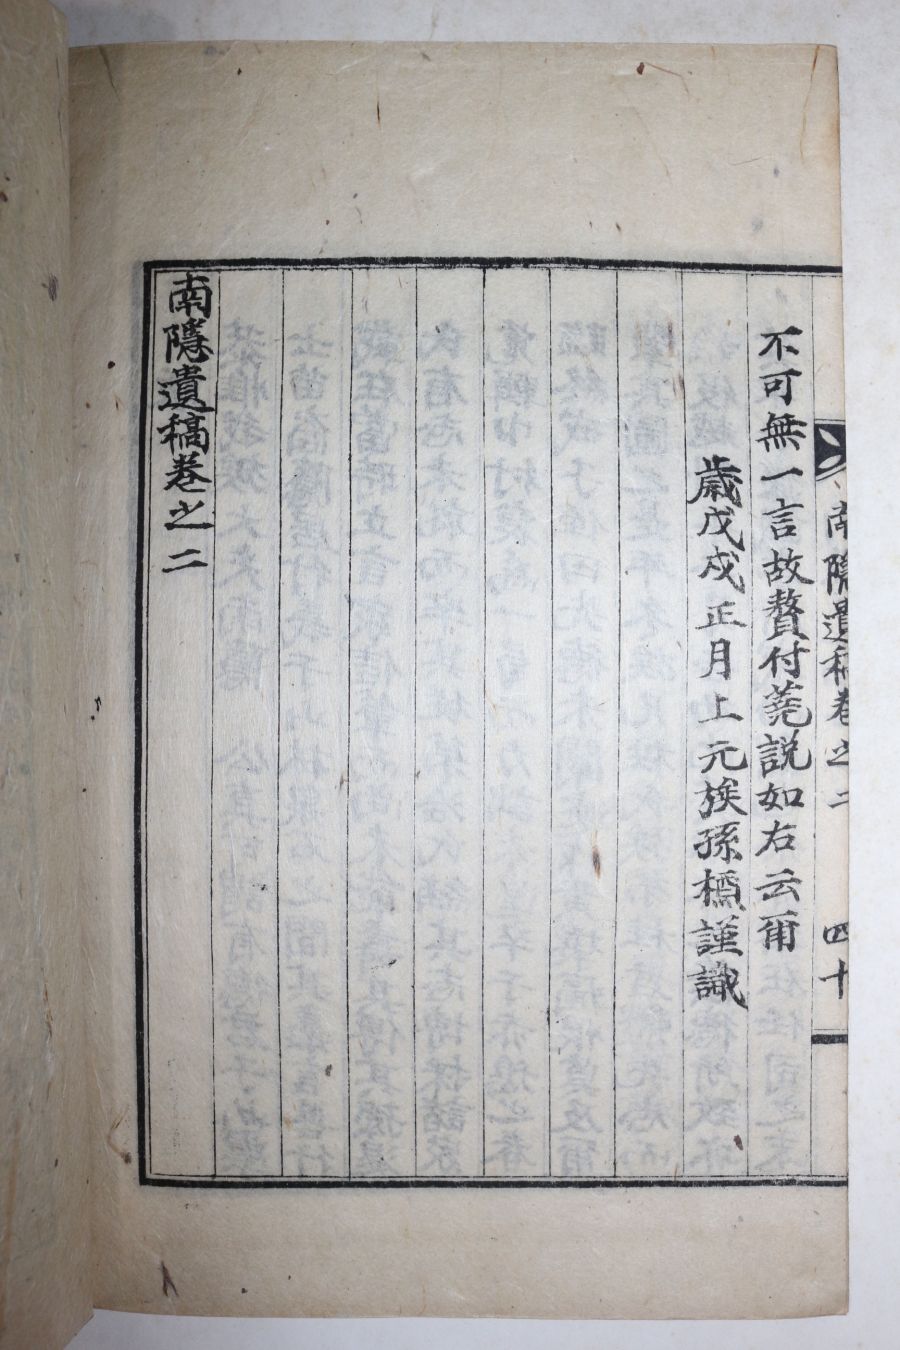 南隱遺稿卷之二 四十
不可無一言故贅付蕘説如右云爾
歲戊戌正月上元族孫㯠謹識
南隱遺稿卷之二